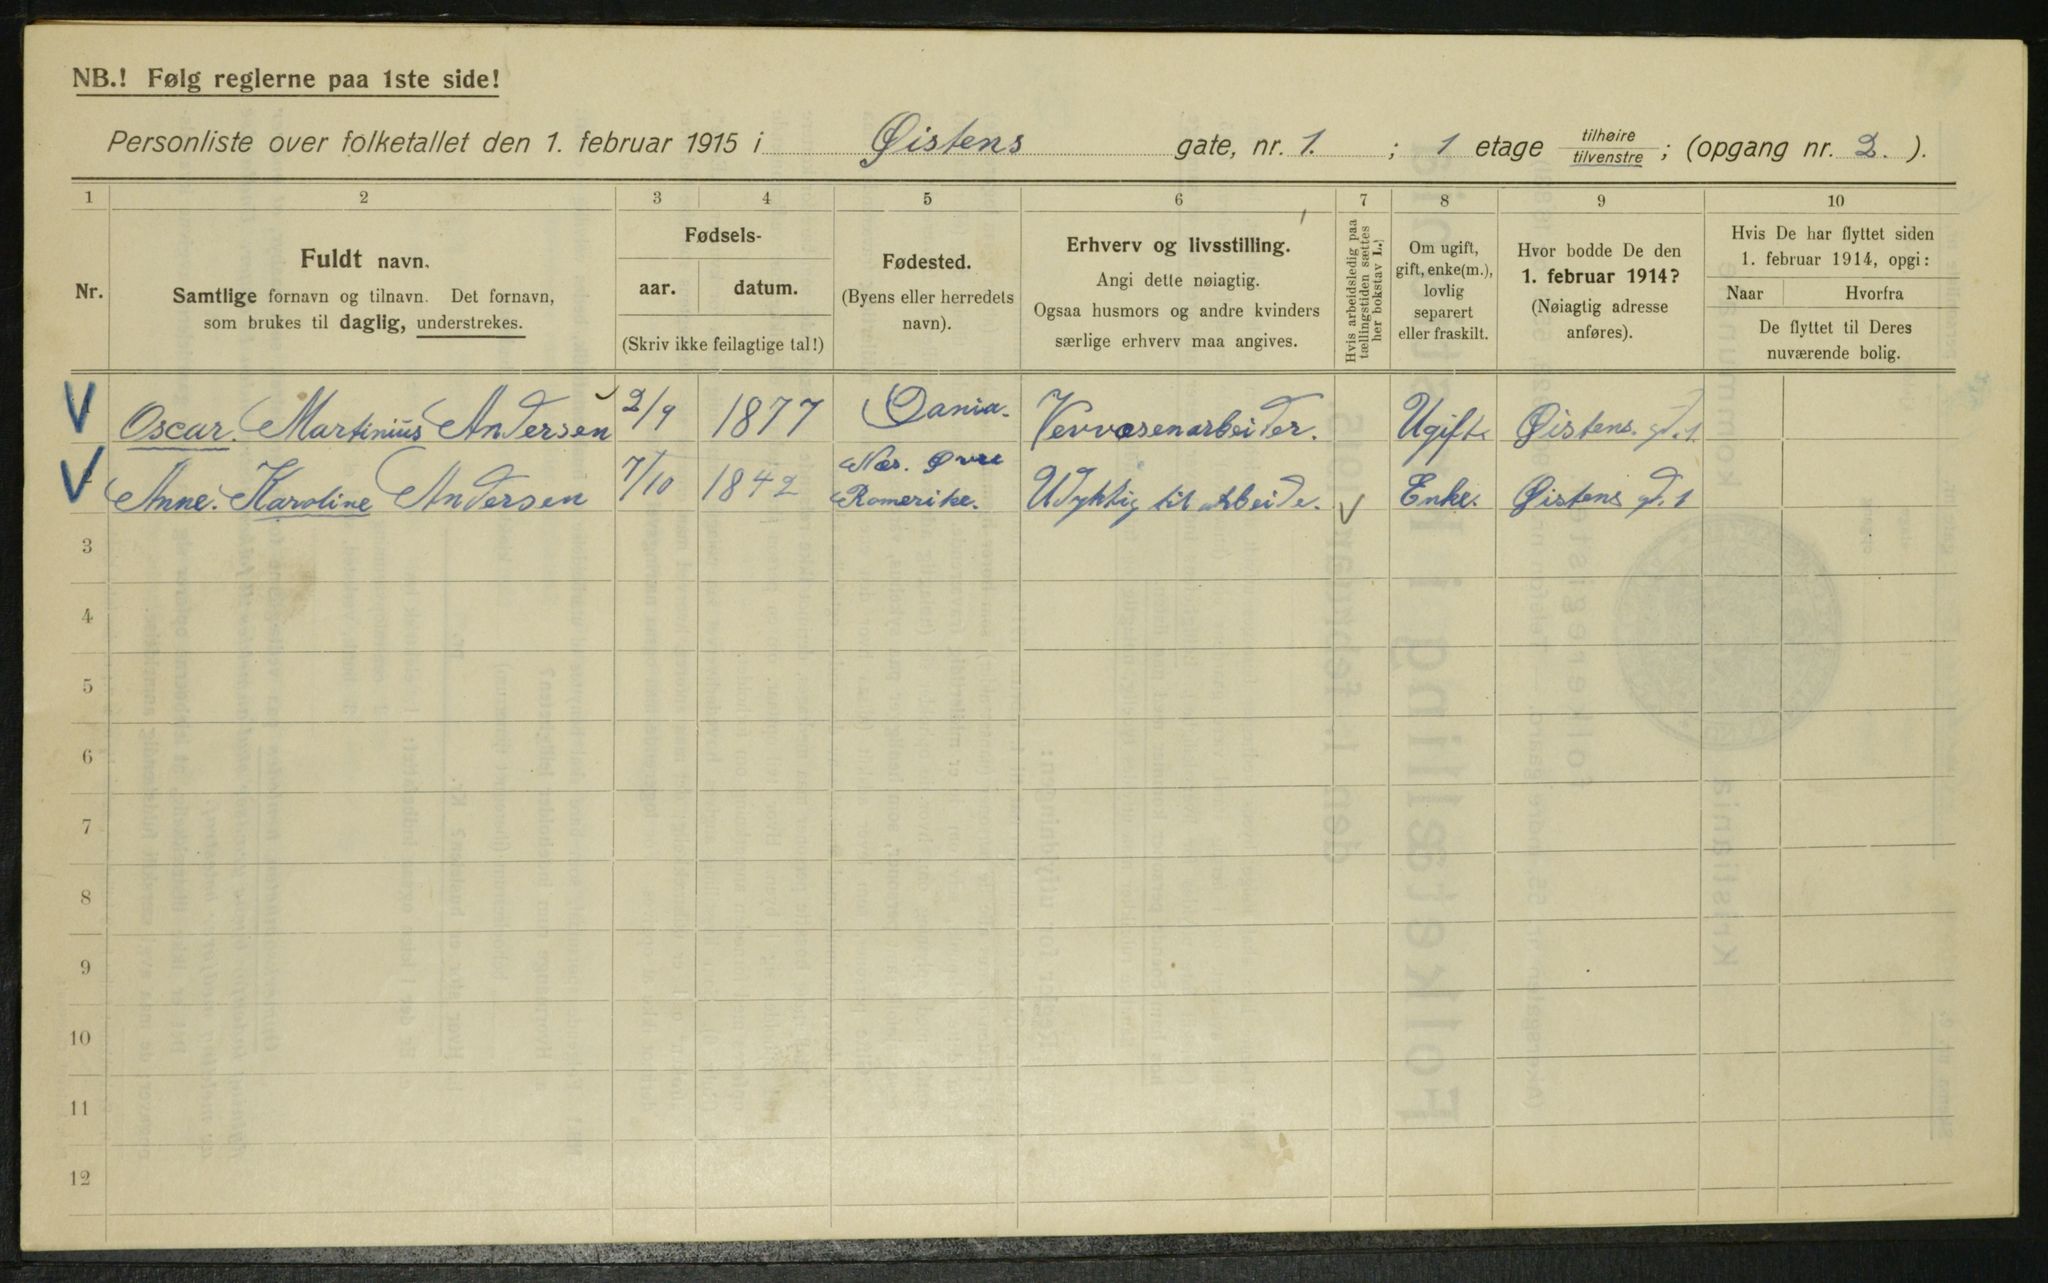 NB.! Følg reglerne paa 1ste side!
Personliste over folketallet den 1. februar 1915 i Øistens gate, nr. 1. ; 1 etage tilhøire tilvenstre ; (opgang nr. 2. ).
1 2 3 4 5 6 7 8 9 10
Nr.
Fuldt navn.
Samtlige fornavn og tilnavn. Det fornavn,
som brukes til daglig, understrekes.
Fødsels-
aar. datum.
(Skriv ikke feilagtige tal!)
Fødested.
(Byens eller herredets
navn).
Erhverv og livsstilling.
Angi dette nøiagtig.
Ogsaa husmors og andre kvinders
særlige erhverv maa angives.
Hvis arbeidsledig paa
tællingstiden sættes
her bokstav L.)
Om ugift,
gift, enke(m.),
lovlig
separert
eller fraskilt.
Hvor bodde De den
1. februar 1914?
(Nøiagtig adresse
anføres).
Hvis De har flyttet siden
1. februar 1914, opgi:
Naar Hvorfra
De flyttet til Deres
nuværende bolig.
Oscar. Martinius Andersen 2/9 1877 Dania. Ugift Øistens. gd. 1
Anne. Karoline Andersen 7/10 1842 Næs. Øvre Romerike. Udyktig til arbeide. Enke. Øistens gd. 1
3
4
5
6
7
8
9
10
11
12